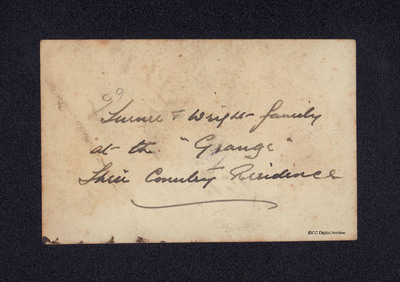 Turner & Wright family
at the "Grange"
Their Country Residence
IBCC Digital Archive